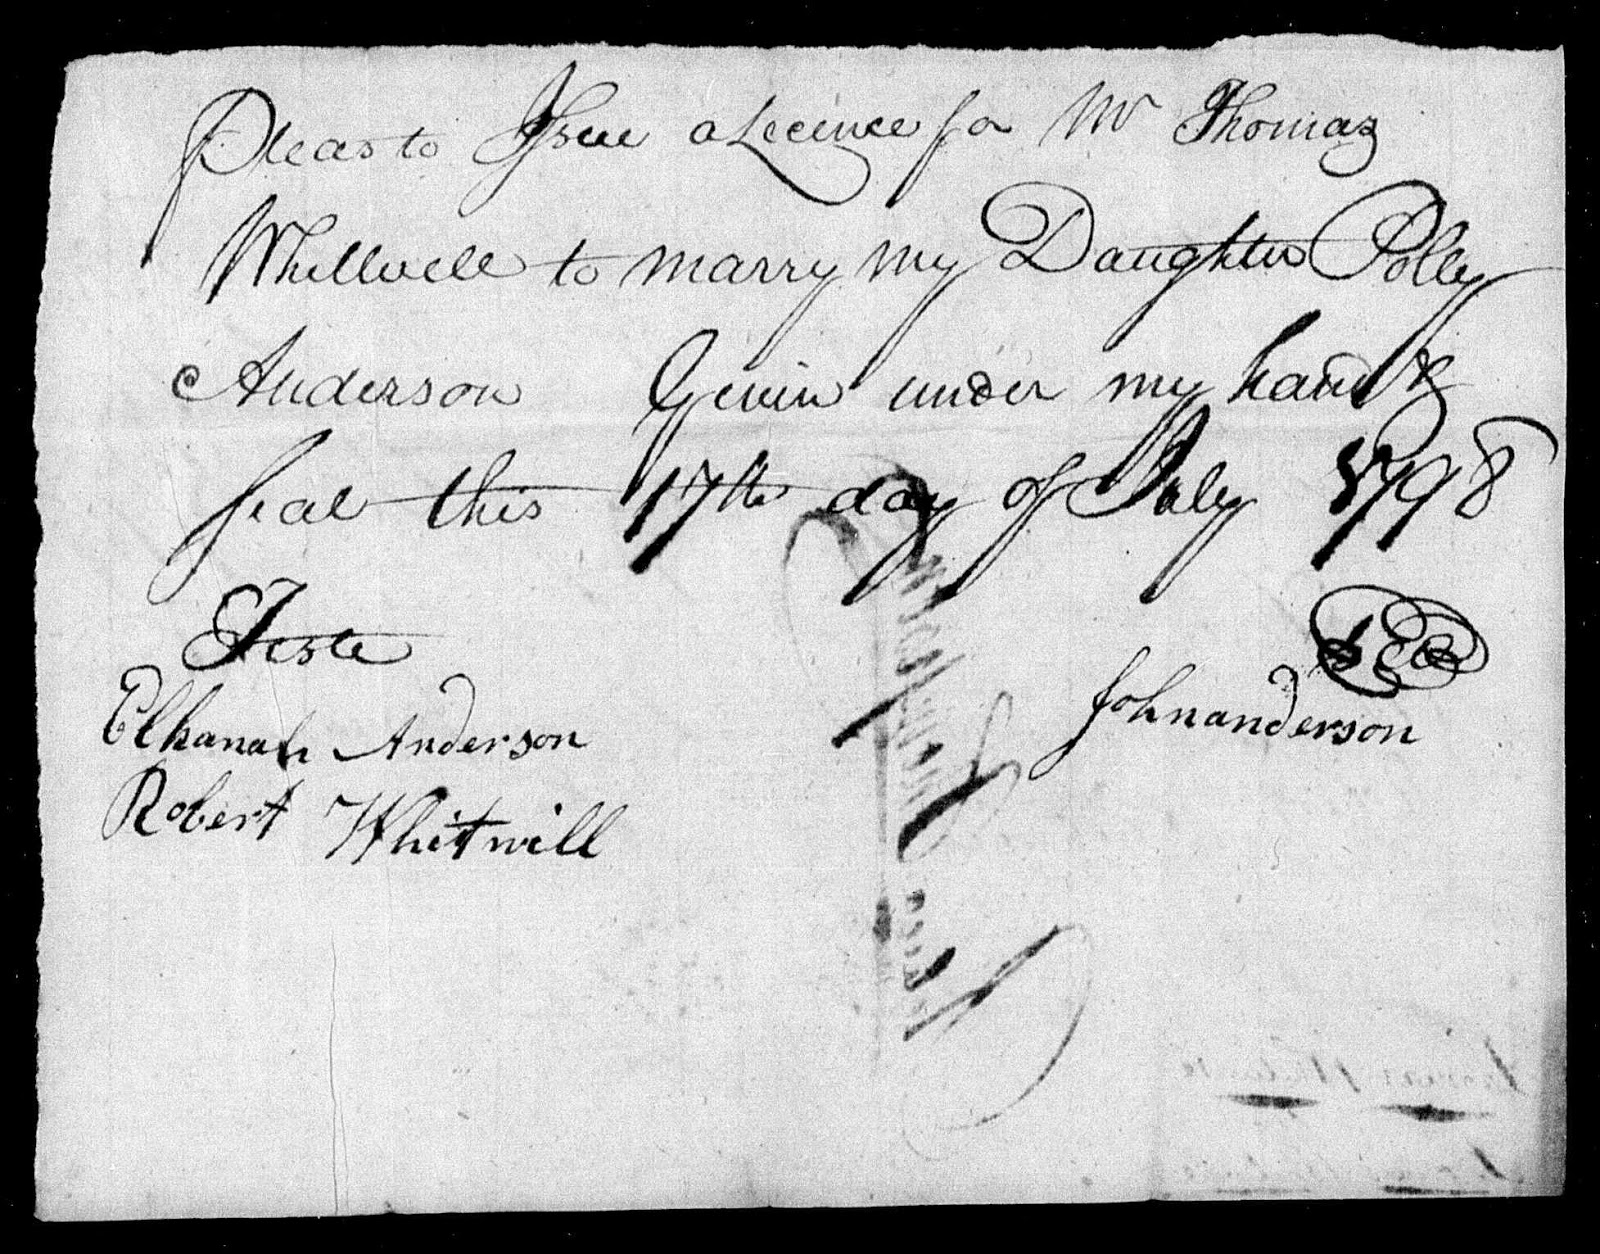 Pleas to Issue a Lecince for Mr Thomas
Whillwell to marry my Daughter Polly
Anderson Gevin under my hand &
seal this 17th day of July 1798
Teste
Elkanah Anderson
Robert Whittwill
John anderson